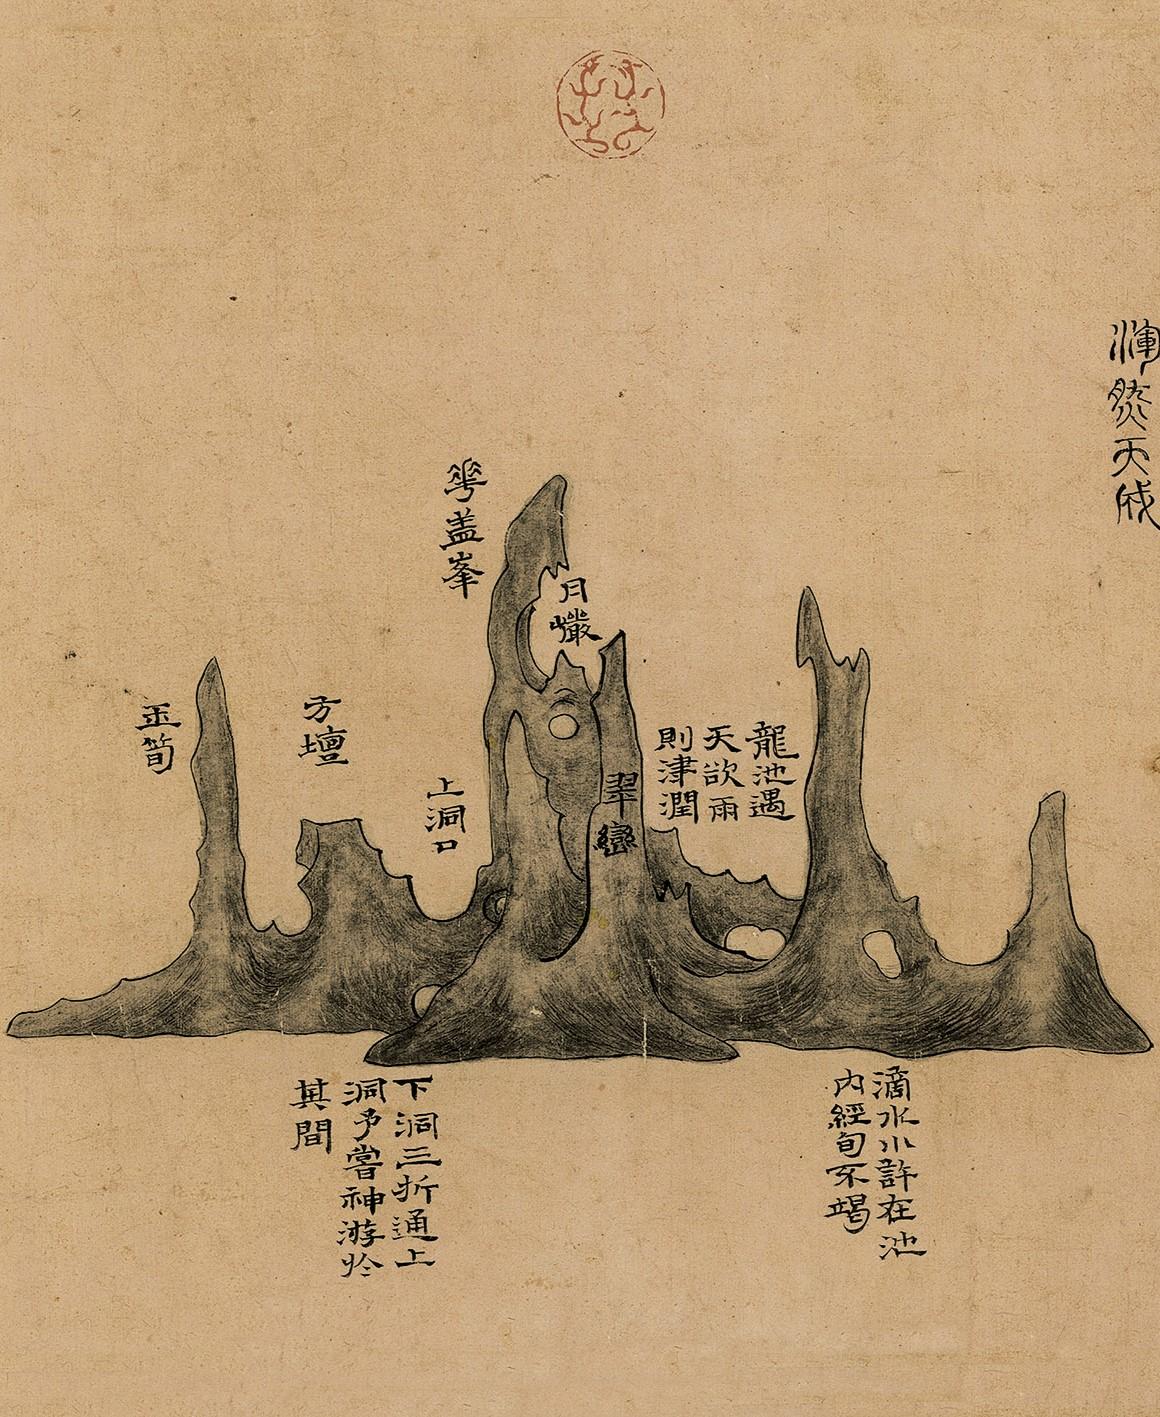 渾然天成
龍池遇
天欲雨
則津潤
滴水小許在池
内經旬不竭
月巖
翠巒
華盖峯
上洞口
下洞三折通上
洞予嘗神游於
其間
方壇
玉筍